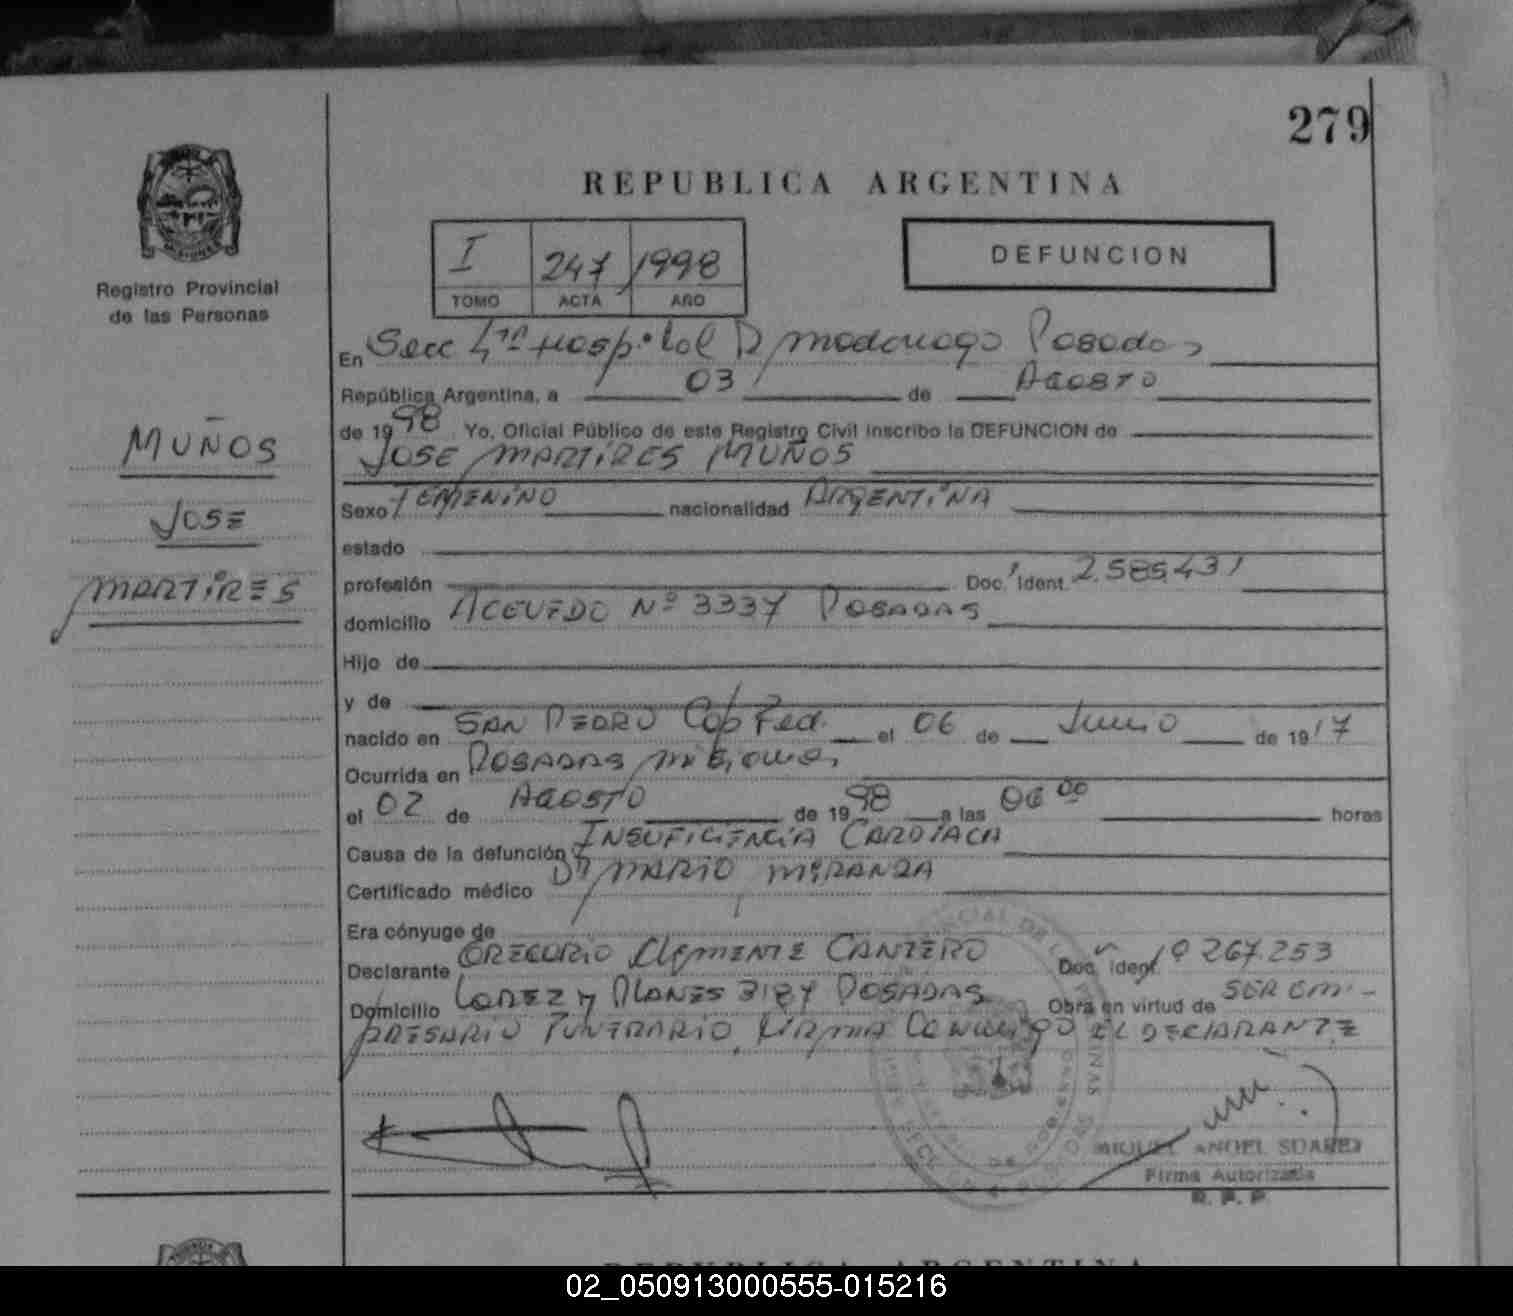 279
REPUBLICA ARGENTINA
I 247 1998
TOMO ACTA AÑO
DEFUNCION
Registro Provincial
de las Personas
MUÑOS
JOSE
MARTIRES
En Secc 4ta Hospital R Madariaga Posadas
República Argentina, a 03 de AGOSTO
de 1998 Yo, Oficial Público de este Registro Civil inscribo la DEFUNCION de
JOSE MARTIRES MUÑOS
Sexo FEMENINO nacionalidad ARGENTINA
estado
profesión Doc. Ident. 2.585.431
domicilio ACEVEDO Nº 3337 POSADAS
Hijo de
y de
nacido en SAN PEDRO Cap Fed. el 06 de Junio de 1917
Ocurrida en POSADAS Misiones
el 02 de AGOSTO de 1998 a las 06 00 horas
Causa de la defunción INSUFICIENCIA CARDIACA
Certificado médico Dr MARIO MIRANDA
Era cónyuge de
Declarante GREGORIO CLEMENTE CANTERO Doc. ident. 8267.253
Domicilio LOPEZ Y PLANES 3184 POSADAS Obra en virtud de SER EM-
PRESARIO FUNERARIO, FIRMA Conmigo EL DECLARANTE
MIGUEL ANGEL SUAREZ
Firma Autorizada
R. P. P.
REPUBLICA ARGENTINA
02_050913000555-015216